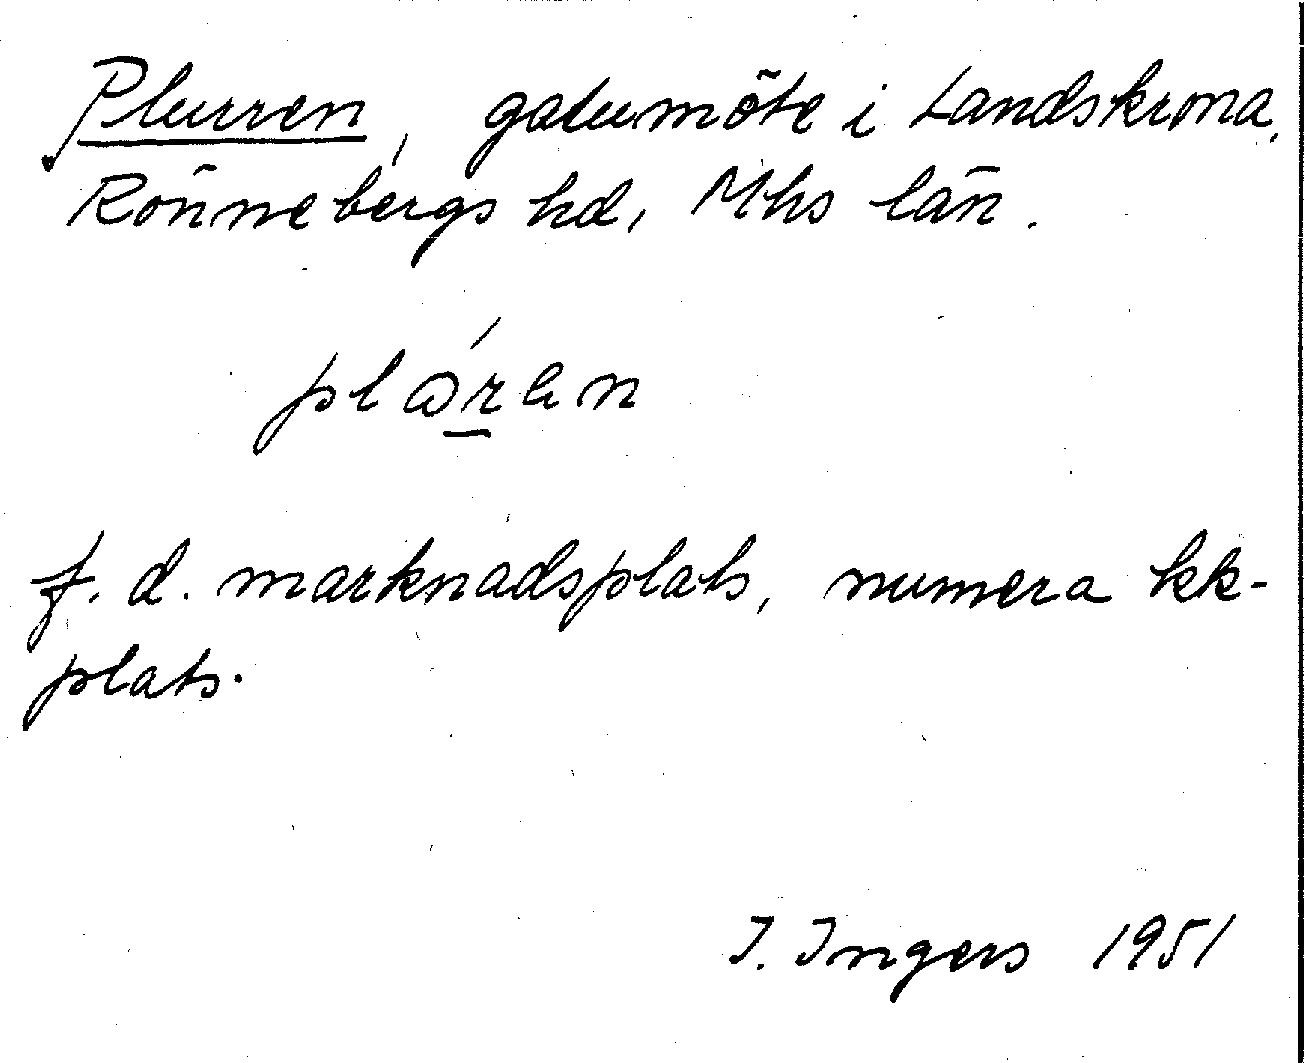 Plurren, gatumöte i Landskrona,
Rönnebergs hd, Mhs län.
f. d. marknadsplats, numera kk-
plats.
I. Ingers 1951